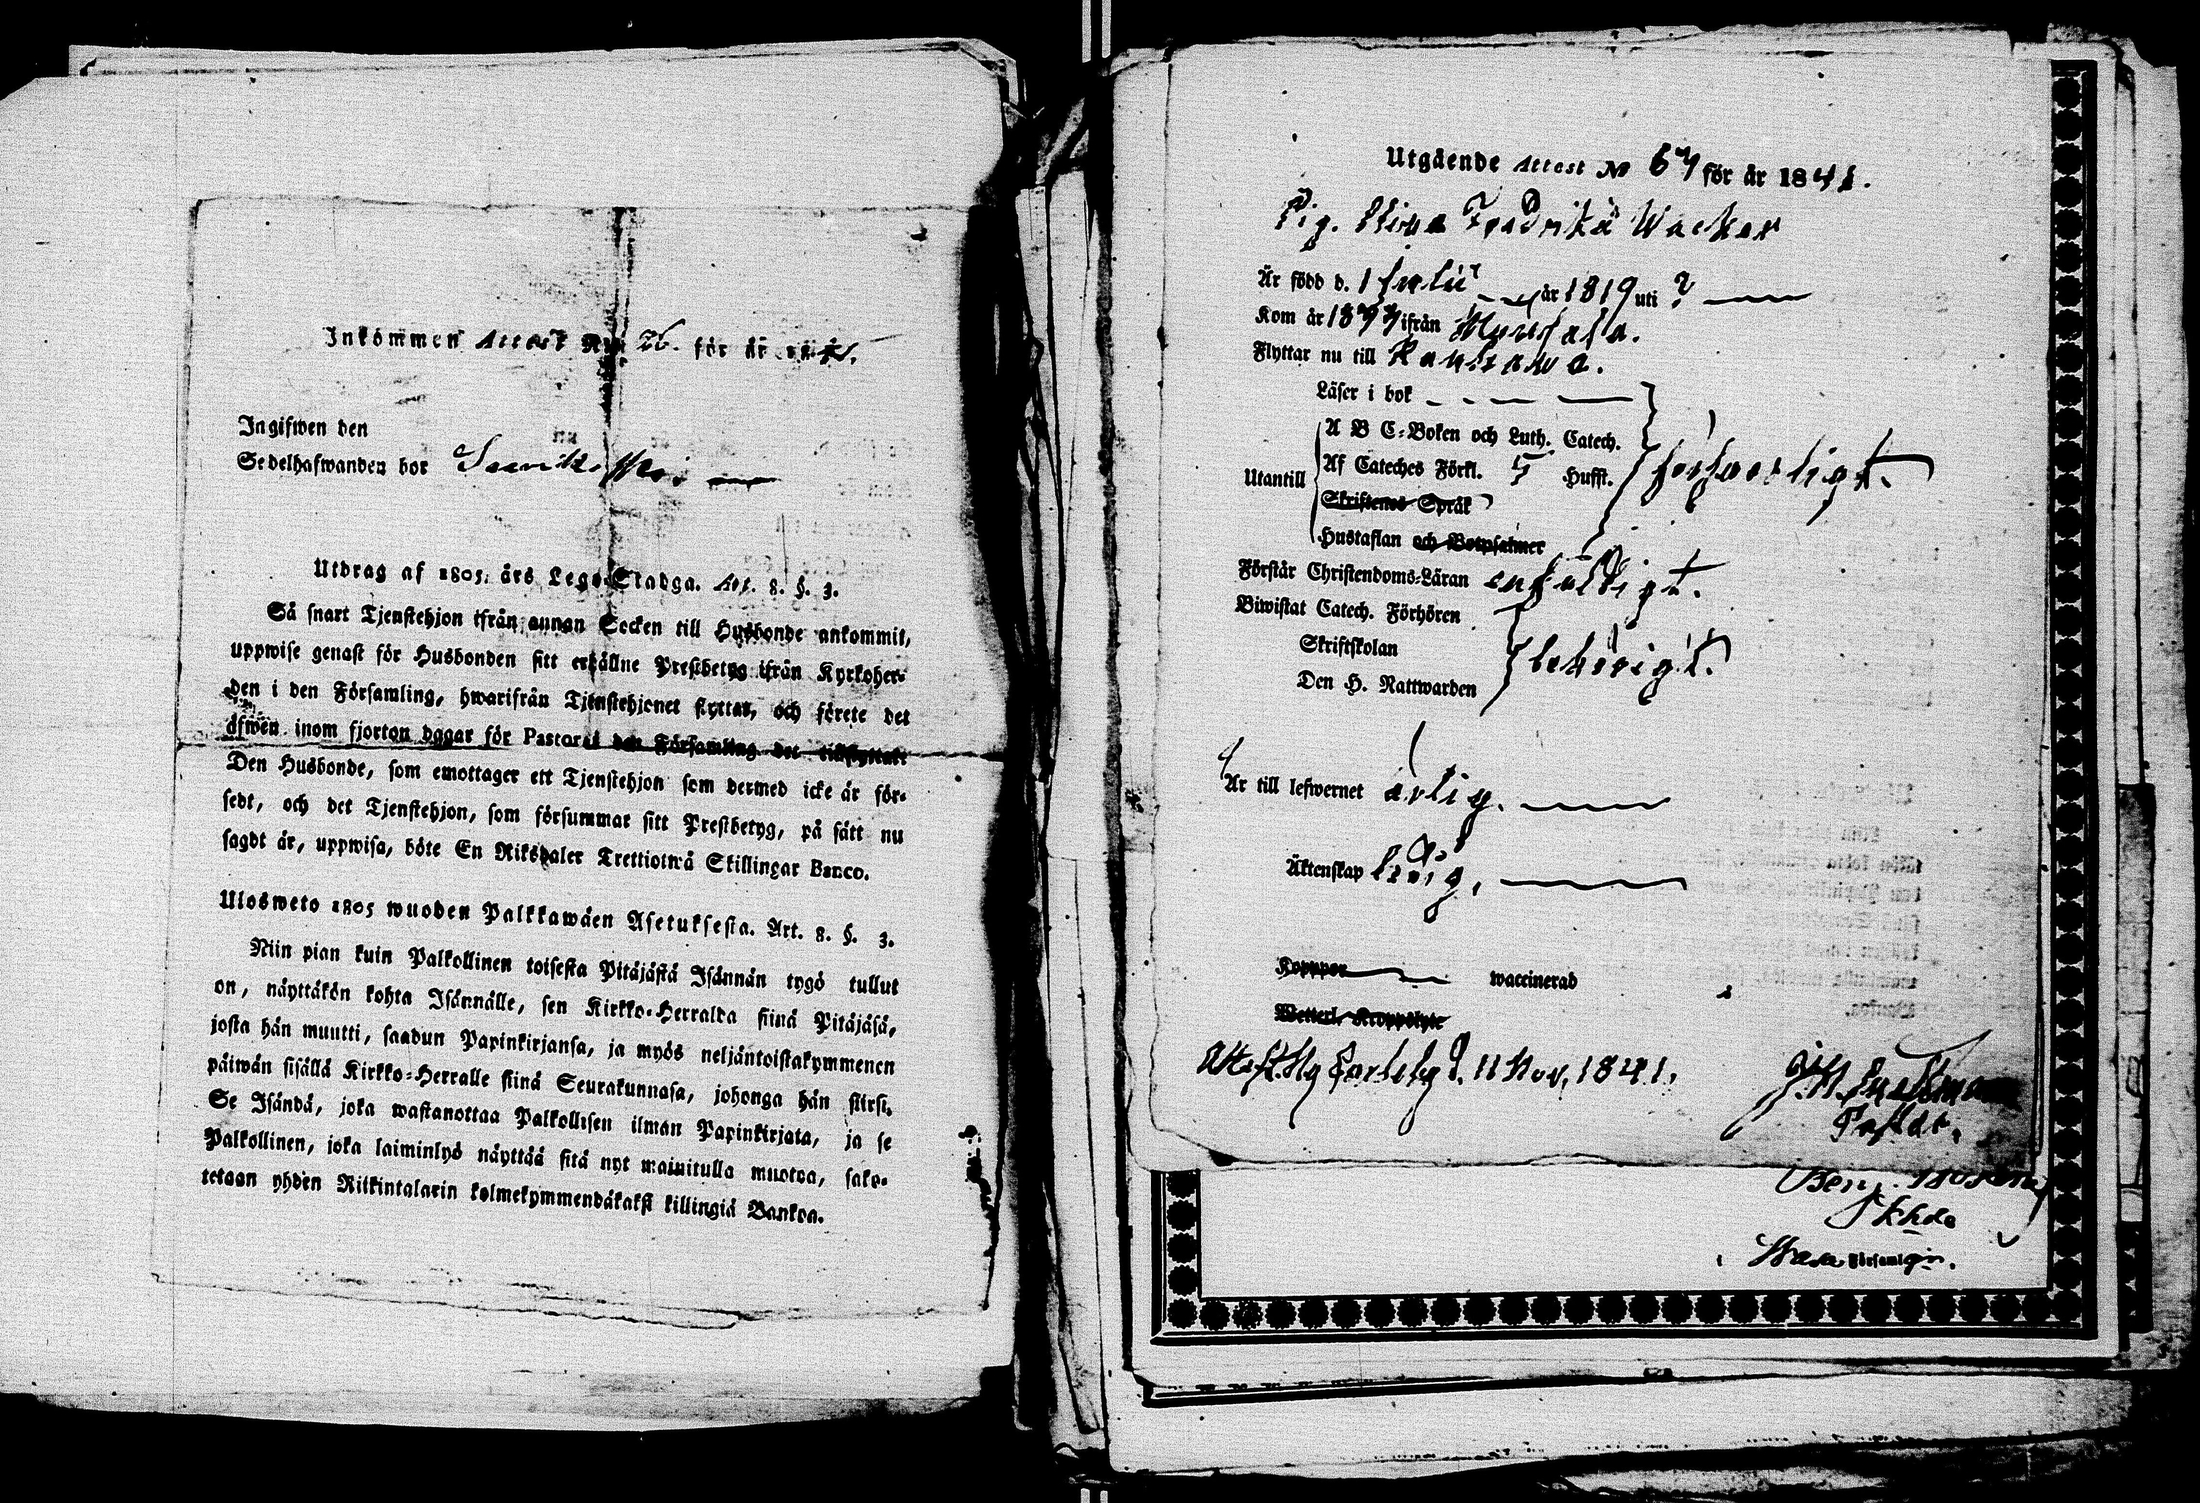 Inkommen Attest N:o 26. för år 1841.
Ingifwen den
Sedelhafwanden bor
Utdrag af 1805. års Lego-Stadga. Art. 8. §. 3.
Så snart Tjenstehjon ifrån annan Socken till Husbonde ankommit,
uppwise genast för Husbonden sitt erhållne Prestbetyg ifrån Kyrkoher-
den i den Församling, hwarifrån Tjenstehjonet flyttat, och förete det
äfwen inom fjorton dagar för Pastorn i den Församling det tillflyttat.
Den Husbonde, som emottager ett Tjenstehjon som dermed icke är för-
sedt, och det Tjenstehjon, som försummar sitt Prestbetyg, på sätt nu
sagdt är, uppwisa, böte En Riksdaler Trettiotwå Skillingar Banco.
Ulosweto 1805 wuoden Palkkawäen Asetuksesta. Art. 8. §. 3.
Niin pian kuin Palkollinen toisesta Pitäjästä Isännän tygö tullut
on, näyttäkön kohta Isännälle, sen Kirkko-Herralda siinä Pitäjäsä,
josta hän muutti, saadun Papinkirjansa, ja myös neljäntoistakymmenen
päiwän sisällä Kirkko-Herralle siinä Seurakunnasa, johonga hän siirsi.
Se Isändä, joka wastanottaa Palkollisen ilman Papinkirjata, ja se
Palkollinen, joka laiminlyö näyttää sitä nyt mainitulla muotoa, sako-
tetaan yhden Riikintalarin kolmekymmendäkaksi killingiä Bankoa.
Utgående Attest No 67 för år 1841.
Pig. Stina Fredrika Wacker
Är född d. 1 Julii år 1819 uti ?
Kom år 1837 ifrån Mustasa.
Flyttar nu till
Läser i bok
A B C-Boken och Luth. Catech.
Utantill Af Cateches Förkl. 5 Hufst. försvarligt.
Skriftenes Språk
Hustaflan och Botpsalmer
Förstår Christendoms-Läran enfaldigt.
Biwistat Catech. Förhören
Skriftskolan behörigt.
Den H. Nattwarden
Är till lefwernet ärlig.
Äktenskap ledig.
Koppor waccinerad
Wetterl. Kroppslyte
Attest. Ny Carleby d. 11 Nov. 1841.
Pastldt.
Wasa Församlgn.